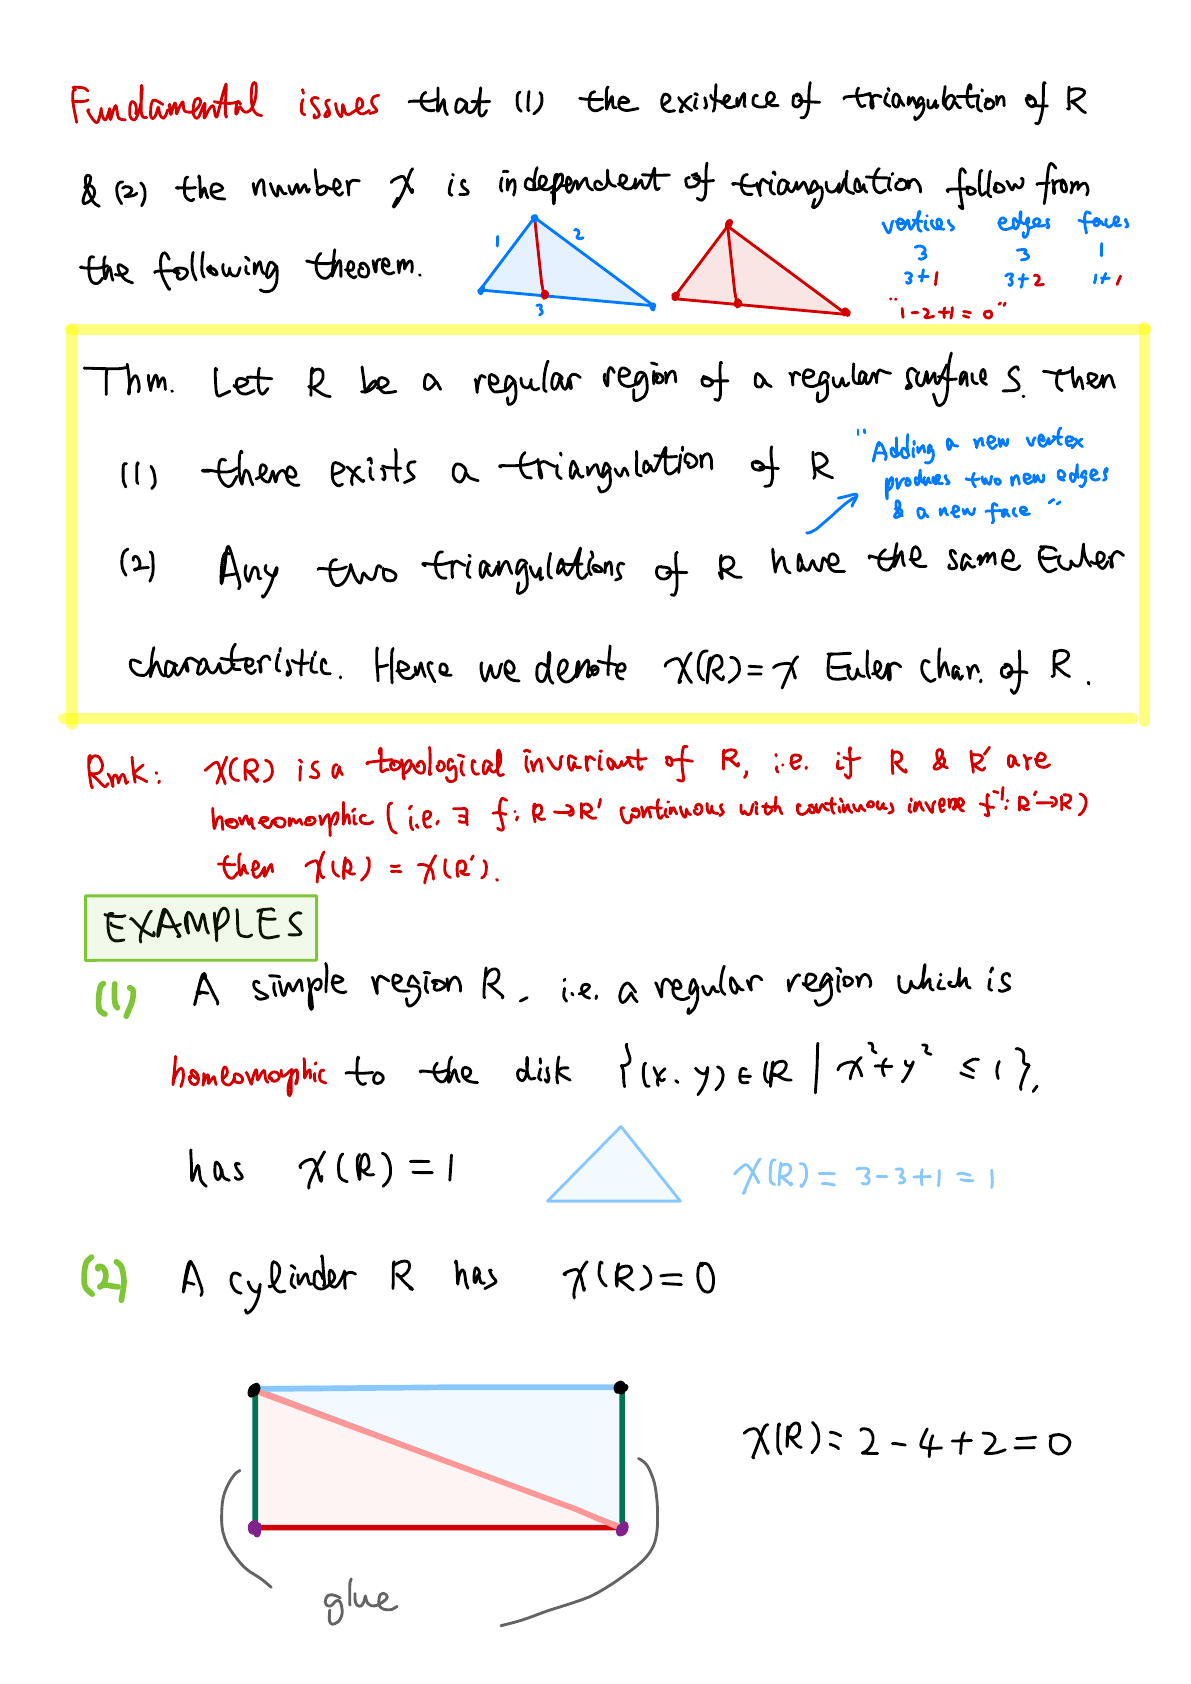 Fundamental issues that (1) the existence of triangulation of R
& (2) the number χ is independent of triangulation follow from
the following theorem.
1 2 3
vertices edges faces
3 3 1
3+1 3+2 1+1
"1-2+1=0"
Thm. Let R be a regular region of a regular surface S. Then
(1) there exists a triangulation of R
"Adding a new vertex
produces two new edges
& a new face"
(2) Any two triangulations of R have the same Euler
characteristic. Hence we denote χ(R)=χ Euler char. of R.
Rmk: χ(R) is a topological invariant of R, i.e. if R & R' are
homeomorphic (i.e. ∃ f: R→R' continuous with continuous inverse f⁻¹: R'→R)
then χ(R) = χ(R').
EXAMPLES
(1) A simple region R, i.e. a regular region which is
homeomorphic to the disk {(x.y)∈R | x²+y² ≤ 1},
has χ(R)=1
χ(R)= 3-3+1=1
(2) A cylinder R has χ(R)=0
χ(R)= 2-4+2=0
glue